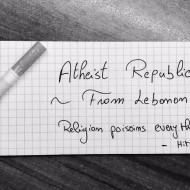 Atheist Republic
~ From Lebonon
Religion poisoins everyth
- Hit